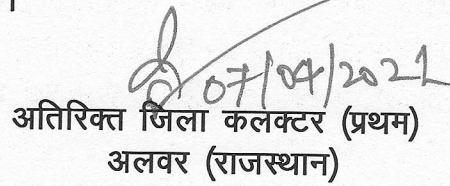 07/04/2021
अतिरिक्त जिला कलक्टर (प्रथम)
अलवर (राजस्थान)